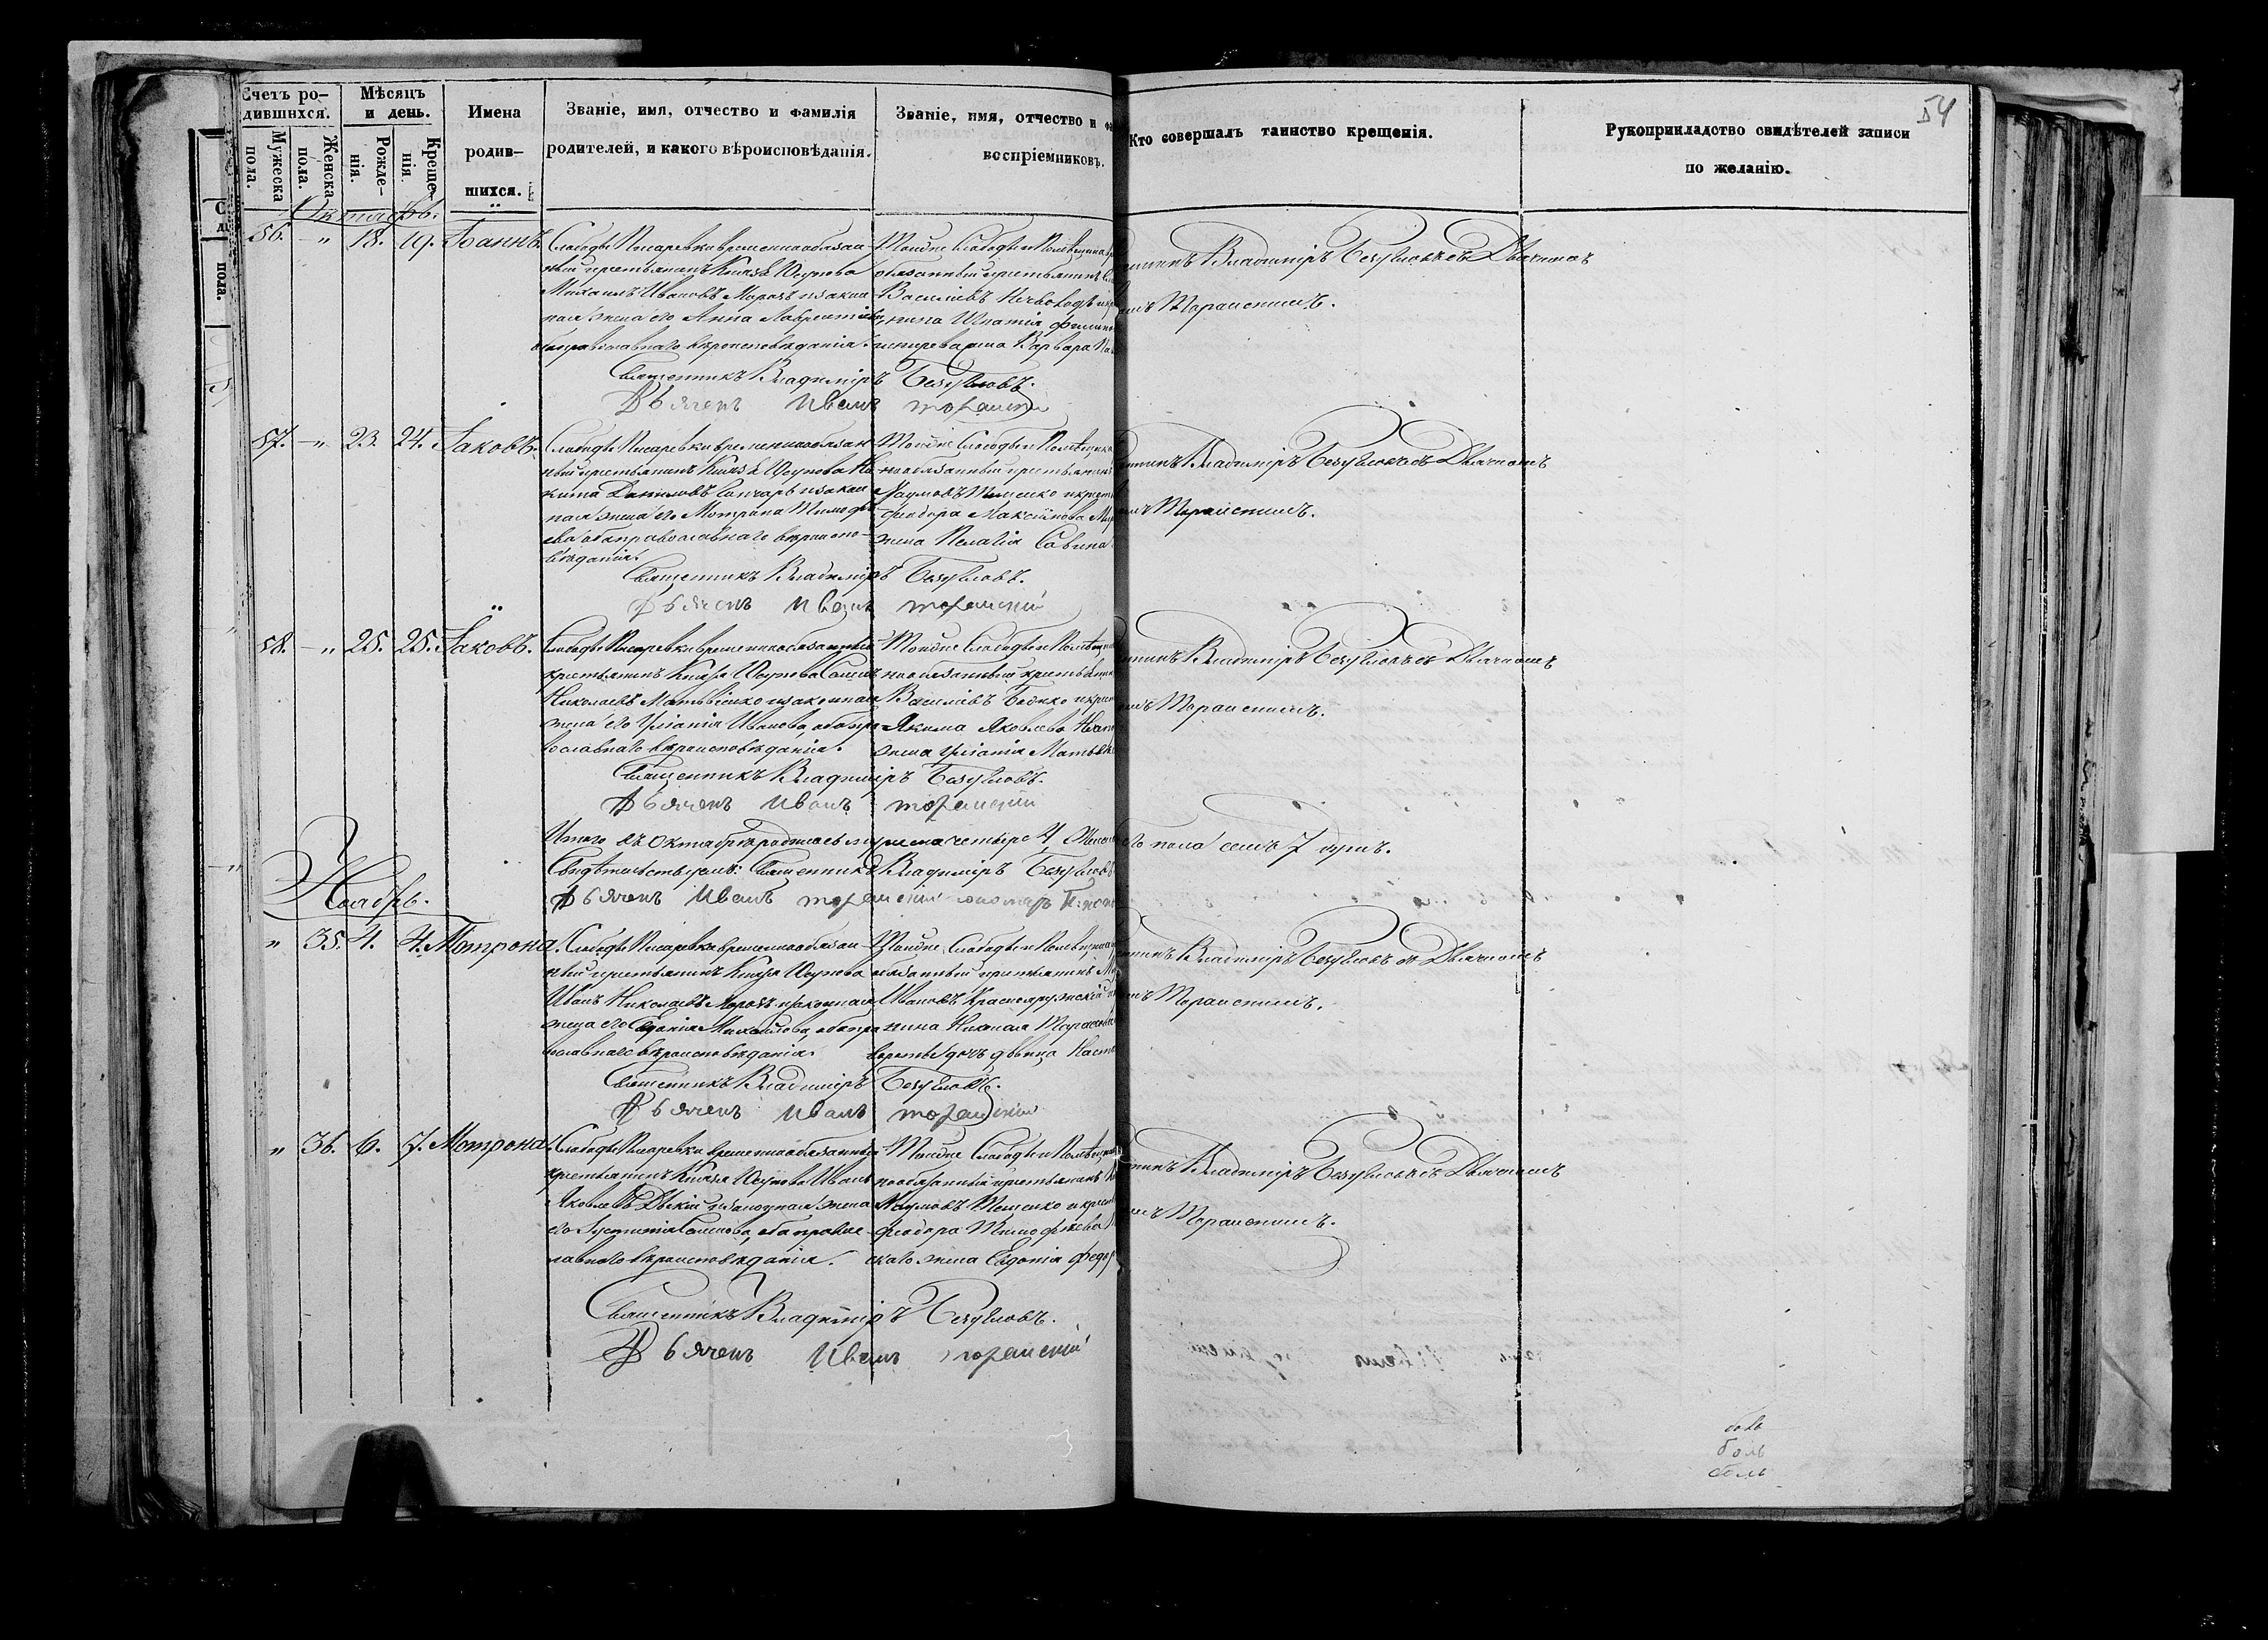 54
Счетъ ро-
дившихся.
Мужеска
пола.
Женска
пола.
Мѣсяцъ
и день.
Рожде-
нія.
Креще-
нія.
Имена
родив-
шихся.
Званіе, имя, отчество и фамилія
родителей, и какого вѣроисповѣданія.
Званіе, имя, отчество и
воспріемниковъ.
Кто совершалъ таинство крещенія.
Рукоприкладство свидѣтелей записи
по желанію.
Октябрь.
56. - " 18. 19. Іоаннъ.
Слободы Писаревки временнообязан-
ный крестьянинъ Князя Юсупова
Михаилъ Ивановъ Морозъ и закон-
ная жена его Анна Лаврентіева
оба православнаго вѣроисповѣданія.
Тойже Слободы и
обязанный крестьянинъ
Василіевъ
Игнатія
жена Варвара
Владиміръ Безугловъ съ Дьячкомъ
Торанскимъ.
Священникъ Владиміръ Безугловъ.
Дьячекъ Иванъ Торанскій
57. - " 23. 24. Іаковъ.
Слободы Писаревки временнообязан-
ный крестьянинъ Князя Юсупова Ни-
кита Даниловъ Гончаръ и закон-
ная жена его Мотрона Тимофѣ-
ева оба православнаго вѣроиспо-
вѣданія.
Тойже Слободы и
нообязанный крестьянинъ
Наумовъ Тищенко и
Феодора Максимова
жена Пелагія Савина
Владиміръ Безугловъ съ Дьячкомъ
Торанскимъ.
Священникъ Владиміръ Безугловъ.
Дьячекъ Иванъ Торанскій
58. - " 25. 25. Іаковъ.
Слободы Писаревки временнообязанный
крестьянинъ Князя Юсупова
Николаевъ Матвіенко и законная
жена его Уліанія Иванова, оба пра-
вославнаго вѣроисповѣданія.
Тойже Слободы и
нообязанный крестьянинъ
Василіевъ Бойко и
Якима Яковлева
жена Уліанія
Владиміръ Безугловъ съ Дьячкомъ
Торанскимъ.
Священникъ Владиміръ Безугловъ.
Дьячекъ Иванъ Торанскій
Итого въ Октябрѣ родилось мужеска четыре 4, Женска го пола семь 7 душъ.
Свидѣтельствуемъ: Священникъ Владиміръ Безугловъ
Дьячекъ Иванъ Торанскій пономарь
Ноябрь.
" 35. 4. 4. Мотрона.
Слободы Писаревки временнообязан-
ный крестьянинъ Князя Юсупова
Иванъ Николаевъ Морозъ и законная
жена его Евдокія Михайлова, оба пра-
вославнаго вѣроисповѣданія.
Тойже Слободы и
обязанный крестьянинъ
Ивановъ Краснояружскій
Николая
дочь дѣвица
Владиміръ Безугловъ съ Дьячкомъ
Торанскимъ.
Священникъ Владиміръ Безугловъ.
Дьячекъ Иванъ Торанскій
" 36. 6. 7. Мотрона.
Слободы Писаревки временнообязанный
крестьянинъ Князя Юсупова Иванъ
Яковлевъ и законная жена
его оба право-
славнаго вѣроисповѣданія.
Тойже Слободы и
нообязанный крестьянинъ
Наумовъ Тищенко и
Феодора Тимофѣева
скаго жена Евдокія
Владиміръ Безугловъ съ Дьячкомъ
Торанскимъ.
Священникъ Владиміръ Безугловъ.
Дьячекъ Иванъ Торанскій